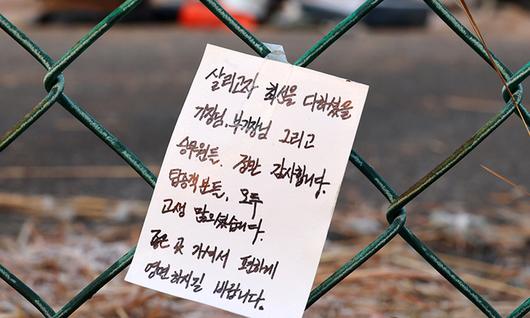 살리고자 최선을 다하셨을
기장님, 부기장님 그리고
승무원들, 정말 감사합니다.
탑승객분들, 모두
고생 많으셨습니다.
좋은 곳 가셔서 편하게
영면하시길 바랍니다.